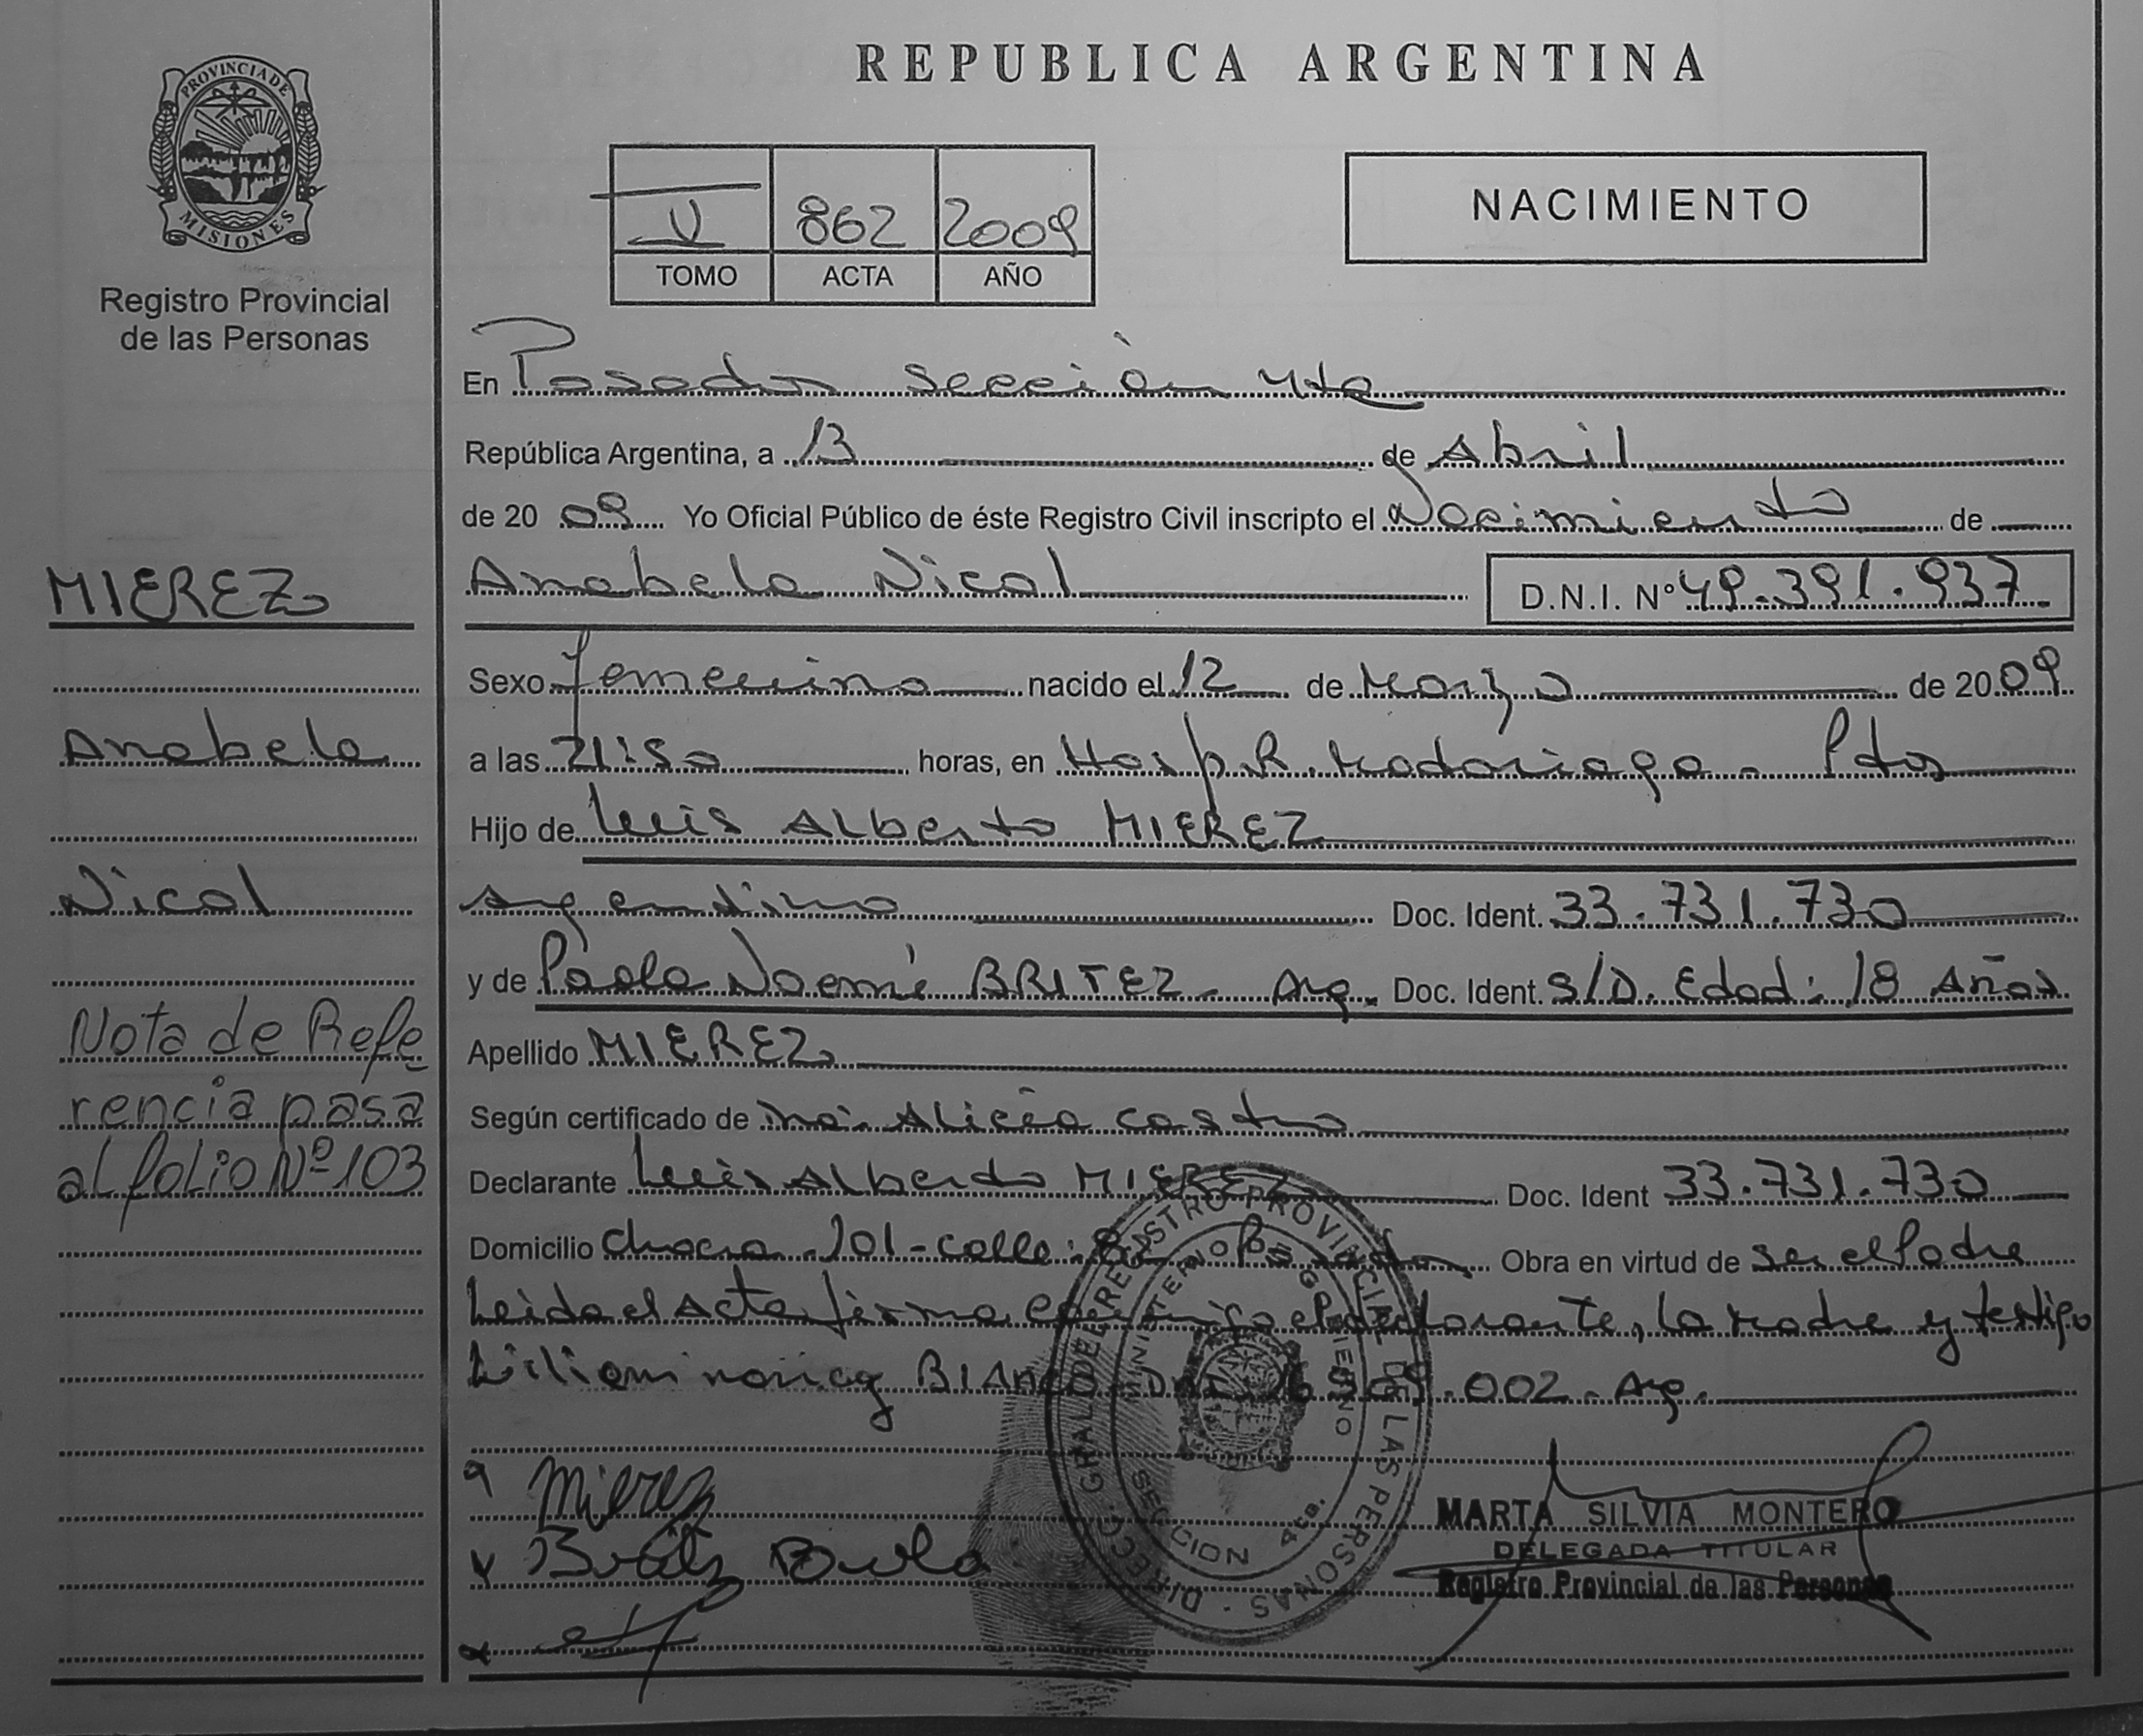 PROVINCIA DE
MISIONES
Registro Provincial
de las Personas
MIEREZ
Anabela
Nicol
Nota de Refe
rencia pasa
al folio Nº 103
REPUBLICA ARGENTINA
V 862 2009
TOMO ACTA AÑO
NACIMIENTO
En Posadas sección 4ta
República Argentina, a 13 de Abril
de 20 09 Yo Oficial Público de éste Registro Civil inscripto el Nacimiento de
Anabela Nicol D.N.I. Nº 49.391.937
Sexo femenino nacido el 12 de Marzo de 20 09
a las 21:50 horas, en Hosp. R. Madariaga - Pdas
Hijo de Luis Alberto MIEREZ
Argentino Doc. Ident. 33.731.730
y de Paola Noemí BRITEZ - Arg. Doc. Ident. S/D. Edad: 18 Años
Apellido MIEREZ
Según certificado de Alicia Castro
Declarante Luis Alberto MIEREZ Doc. Ident 33.731.730
Domicilio Chacra 101 - calle: Posadas Obra en virtud de ser el Padre
Leida el Acta firma conmigo el declarante, la madre y testigo
002 - Arg.
Mierez
Britez Paola
DIRECC. GRAL. DEL REGISTRO PROVINCIAL DE LAS PERSONAS
MINISTERIO DE GOBIERNO
SECCION 4ta.
MARTA SILVIA MONTERO
DELEGADA TITULAR
Registro Provincial de las Personas